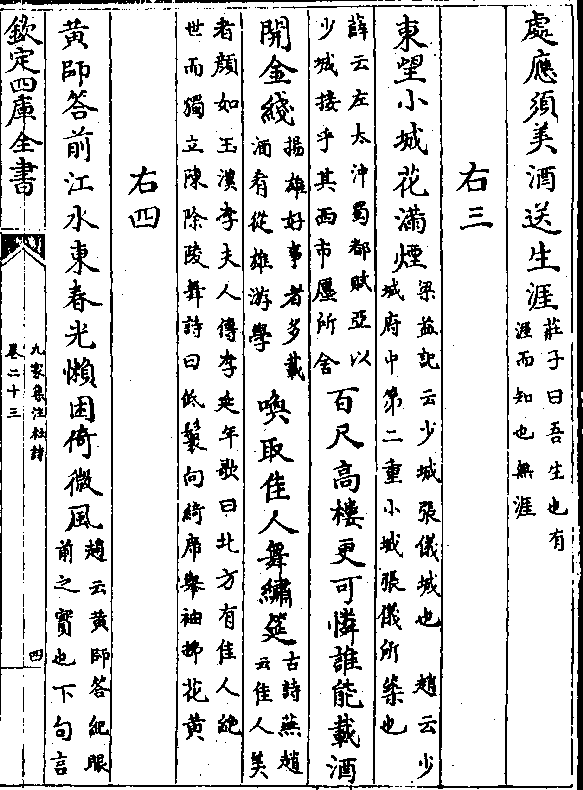 處應須美酒送生涯莊子曰吾生也有涯而知也無涯
右三
東望小城花滿煙梁益記云少城張儀城也　趙云少城府中第二重小城張儀所築也
薛云左太沖蜀都賦亞以少城接乎其西市廛所會百尺高樓更可憐誰能載酒
開金綫揚雄好事者多載酒肴從雄游學喚取佳人舞繡筵古詩燕趙云佳人美
者顔如玉漢李夫人傳李延年歌曰北方有佳人絶世而獨立陳除陵舞詩曰低鬟向綺席舉袖拂花黄
右四
黄師答前江水東春光懶困倚微風趙云黄師答紀眼前之實也下句言
欽定四庫全書
九家集注杜詩
卷二十三
四